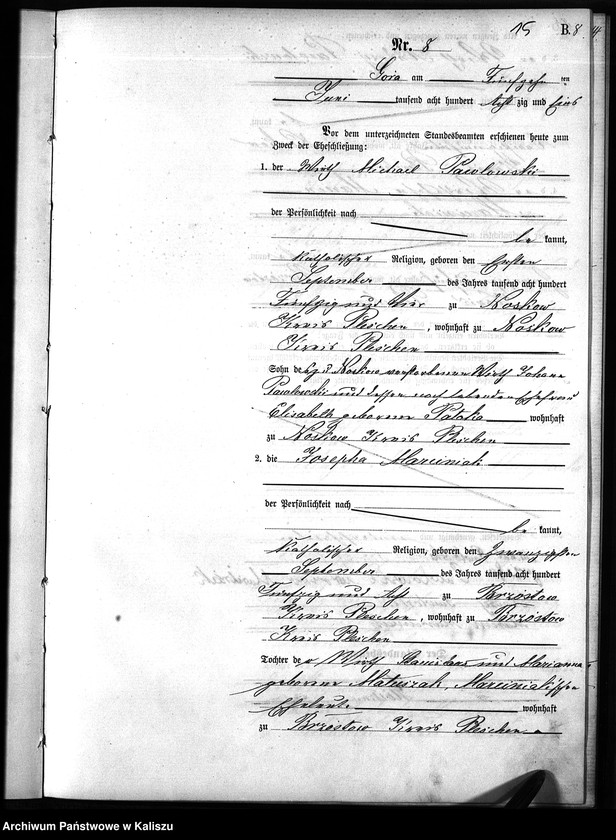 15 B. 8
Nr. 8
Gora am Fünfzehn ten
Juni tausend acht hundert Acht zig und Eins
Vor dem unterzeichneten Standesbeamten erschienen heute zum
Zweck der Eheschließung:
1. der Wirth Michael Pawlowski
der Persönlichkeit nach
be kannt,
katholischer Religion, geboren den Ersten
September des Jahres tausend acht hundert
Fünfzig und Vier zu Noskow
Kreis Pleschen, wohnhaft zu Noskow
Kreis Pleschen
Sohn des zu Noskow verstorbenen Wirth Johann
Pawlowski und dessen noch lebenden Ehefrau
Elisabeth geborene Patalia wohnhaft
zu Noskow Kreis Pleschen
2. die Josepha Marciniak
der Persönlichkeit nach
be kannt,
katholischer Religion, geboren den Zwanzigsten
September des Jahres tausend acht hundert
Fünfzig und Acht zu Brzostow
Kreis Pleschen, wohnhaft zu Brzostow
Kreis Pleschen
Tochter der Wirth Stanislaus und Marianna
geborene Matuszak, Marciniakschen
Eheleute wohnhaft
zu Brzostow Kreis Pleschen
Archiwum Państwowe w Kaliszu